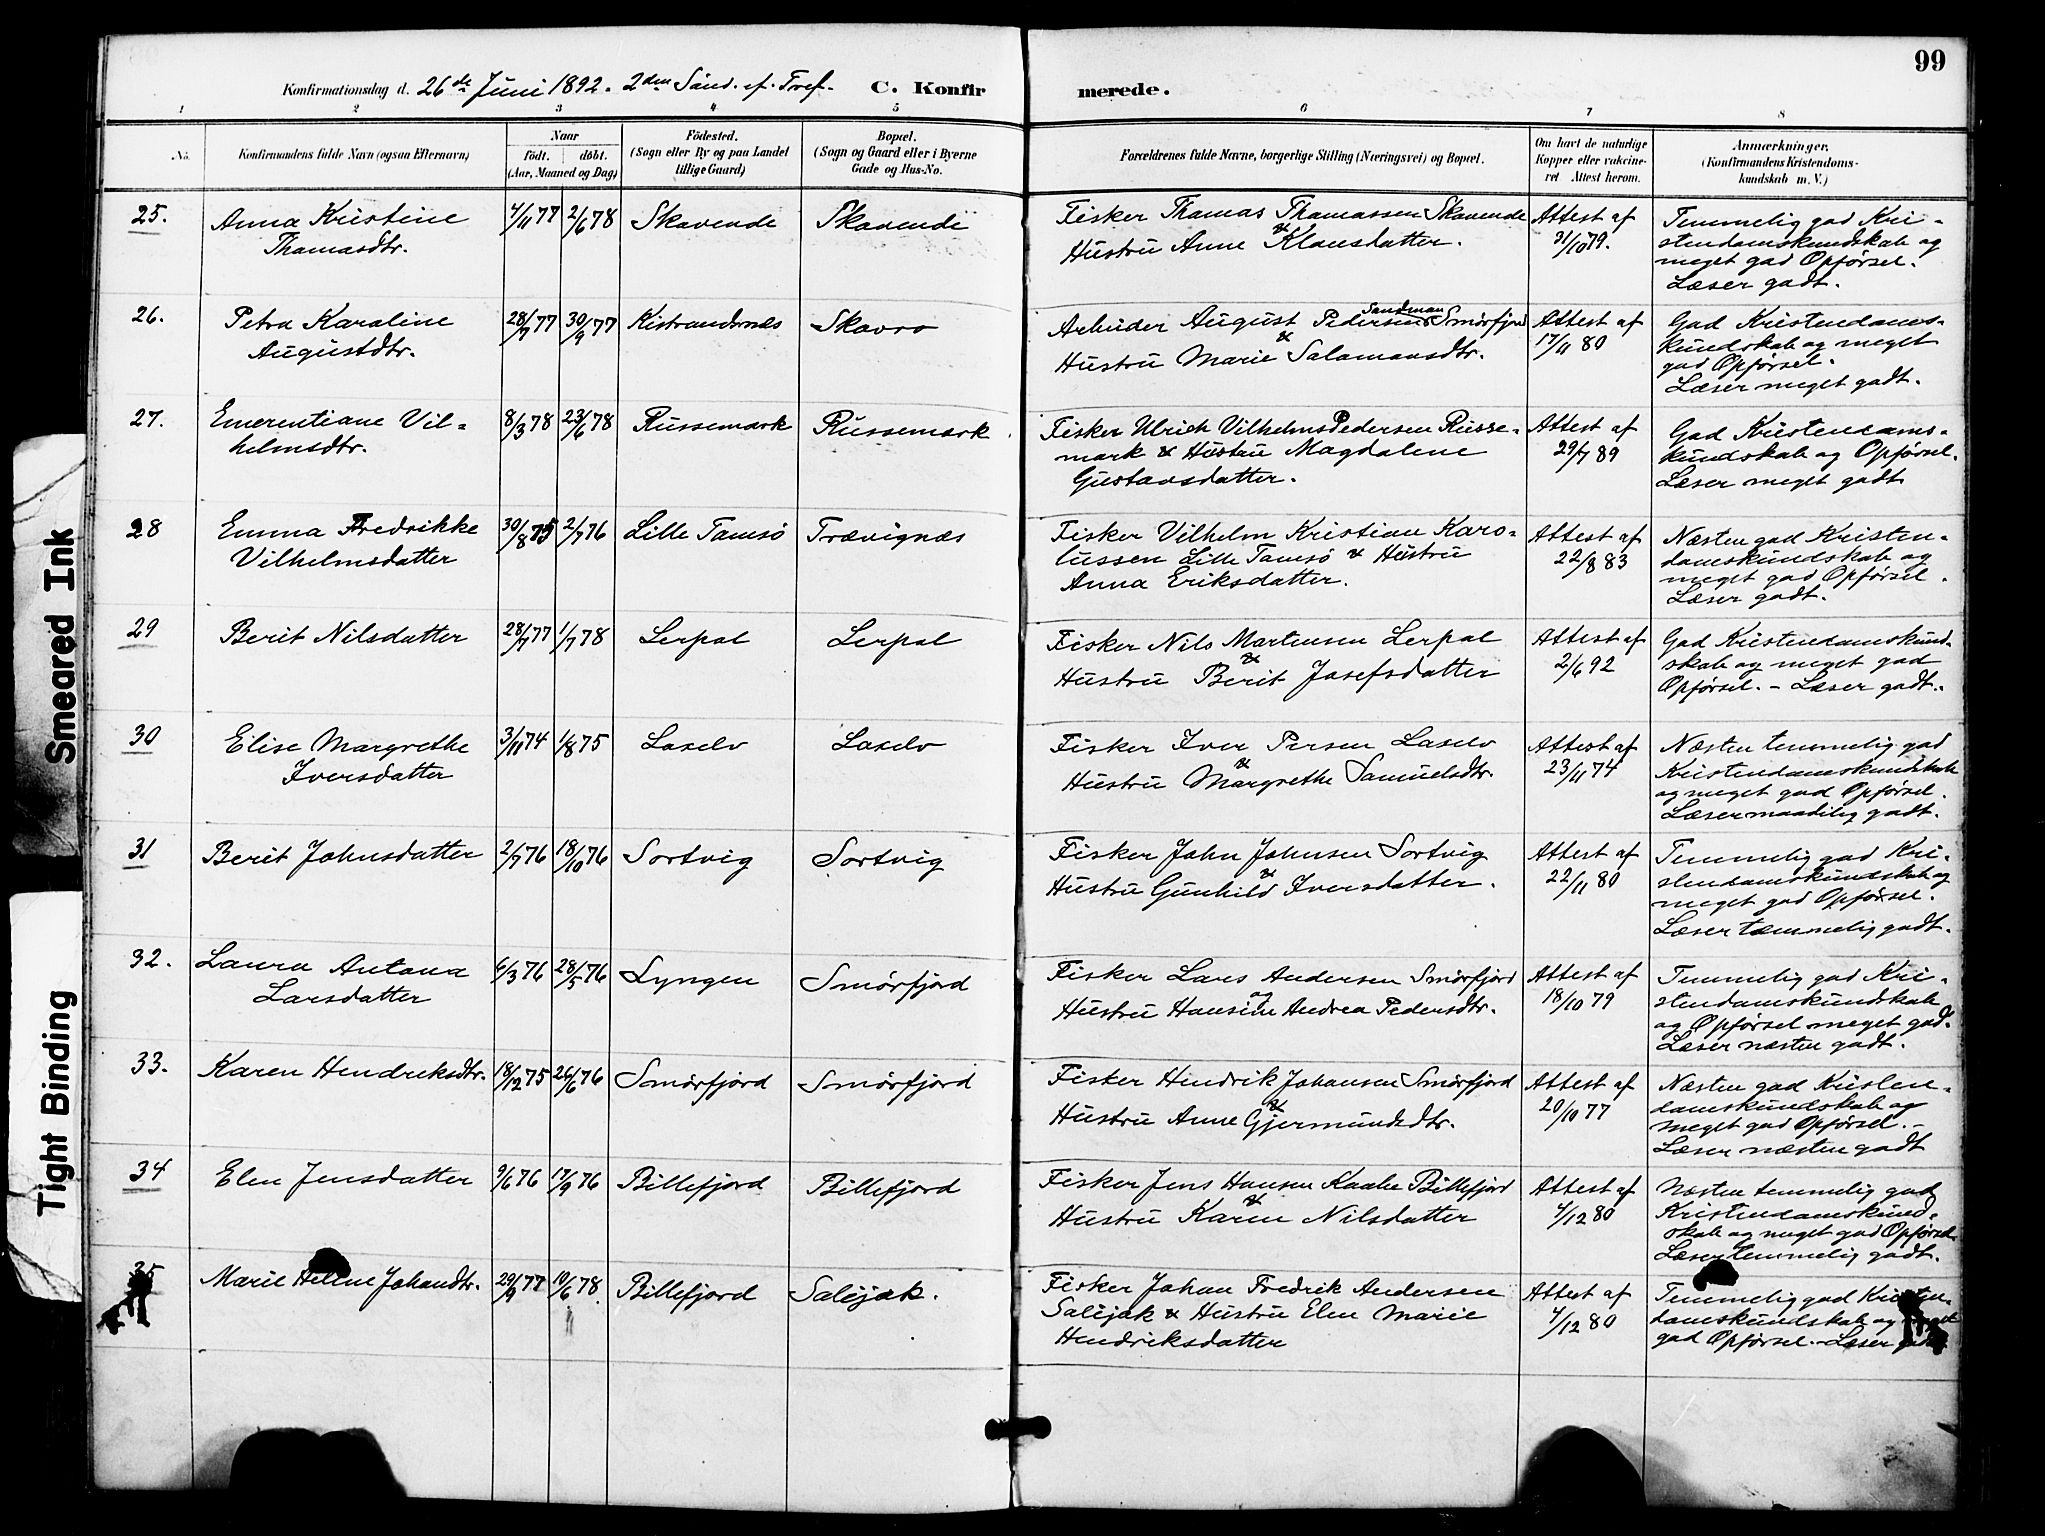 99
Konfirmationsdag d. 26de Juni 1892. 2den Sönd. ef. Tref. C. Konfir merede.
1 2 3 4 5 6 7 8
No. Konfirmandens fulde Navn (ogsaa Efternavn) Naar födt. döbt. (Aar, Maaned og Dag) Födested. (Sogn eller By og paa Landet tillige Gaard) Bopæl. (Sogn og Gaard eller i Byerne Gade og Hus-No. Forældrenes fulde Navne, borgerlige Stilling (Næringsvei) og Bopæl. Om havt de naturlige Kopper eller vakcineret Attest herom. Anmærkninger. (Konfirmandens Kristendomskundskab m. V.)
25. Anna Kristine Thomasdtr. 4/11 77 2/6 78 Skavende Skavende Fisker Thomas Thomassen Skavende & Hustru Anne Klausdatter. Attest af 31/10 79. Temmelig god Kristendomskundskab og meget god Opførsel. Læser godt.
26. Petra Karoline Augustdtr. 28/7 77 30/9 77 Kistrandsnæs Skavro Arbeider August Pedersen Sandman Smörfjord & Hustru Marie Salamonsdtr. Attest af 17/11 80 God Kristendomskundskab og meget god Opførsel. Læser meget godt.
27. Emerentiane Vilhelmsdtr. 8/3 78 23/6 78 Russemark Russemark Fisker Ulrich Vilhelm Pedersen Russemark & Hustru Magdalene Gustavsdatter. Attest af 29/7 89 God Kristendomskundskab og Opførsel. Læser meget godt
28 Emma Fredrikke Vilhelmsdatter 30/8 75 2/7 76 Lille Tamsö Trævignæs Fisker Vilhelm Kristian Karolussen Lille Tamsö & Hustru Anna Eriksdatter. Attest af 22/8 83 Næsten god Kristendomskundskab og meget god Opførsel. Læser godt.
29 Berit Nilsdatter 28/7 77 1/7 78 Lerpol Lerpol Fisker Nils Mortensen Lerpol & Hustru Berit Josefsdatter Attest af 2/6 92 God Kristendomskundskab og meget god Opførsel. - Læser godt.
30 Elise Margrethe Iversdatter 3/11 74 1/8 75 Laselv Laselv Fisker Iver Persen Laselv & Hustru Margrethe Samuelsdtr. Attest af 23/11 74 Næsten temmelig god Kristendomskundskab og meget god Opførsel. Læser maadelig godt.
31 Berit Johnsdatter 2/7 76 18/10 76 Sortvig Sortvig Fisker John Johnsen Sortvig & Hustru Gunhild Iversdatter. Attest af 22/11 80 Temmelig god Kristendomskundskab og meget god Opførsel. Læser temmelig godt.
32. Laura Antona Larsdatter 6/3 76 28/5 76 Lyngen Smörfjord Fisker Lars Andersen Smörfjord og Hustru Hansine Andrea Pedersdtr. Attest af 18/10 79 Temmelig god Kristendomskundskab og Opførsel meget god. Læser næsten godt.
33. Karen Hendriksdtr. 18/12 75 26/6 76 Smörfjord Smörfjord Fisker Hendrik Johansen Smörfjord & Hustru Anne Gjermundsdtr. Attest af 20/10 77 Næsten god Kristendomskundskab og meget god Opførsel. - Læser næsten godt
34 Elen Jensdatter 9/6 76 17/9 76 Billefjord Billefjord Fisker Jens Hansen Kaabe Billefjord & Hustru Karen Nilsdatter Attest af 4/12 80 Næsten temmelig god Kristendomskundskab og meget god Opførsel. Læser temmelig godt.
35 Marie Helene Johandtr. 29/9 77 10/6 78. Billefjord Saløjok. Fisker Johan Fredrik Andersen Saløjok & Hustru Elen Marie Hendriksdatter Attest af 4/12 80 Temmelig god Kristendomskundskab og meget god Opførsel. - Læser godt
Smeared Ink
Tight Binding